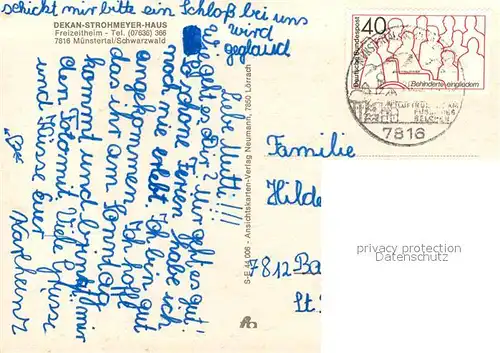 schickt mir bitte ein Schloß bei uns
wird
geglaud
DEKAN-STROHMEYER-HAUS
Freizeitheim - Tel. (07636) 366
7816 Münstertal/Schwarzwald
Liebe Mutti!!!
Wie geht es Dir? Mir geht es gut!
So schöne Ferien habe ich
noch nie erlebt. Ich bin gut
angekommen. Ich hoffe
das ihr am Sonntag
kommt und bringt mir
den Foto mit. Viele Grüsse
und Küsse Euer
Karlheinz
S-E 44 006 - Ansichtskarten-Verlag Neumann, 7850 Lörrach
Deutsche Bundespost
40
Behinderte eingliedern
7816
Familie
Hilde
7812 Ba
St.
privacy protection
Datenschutz